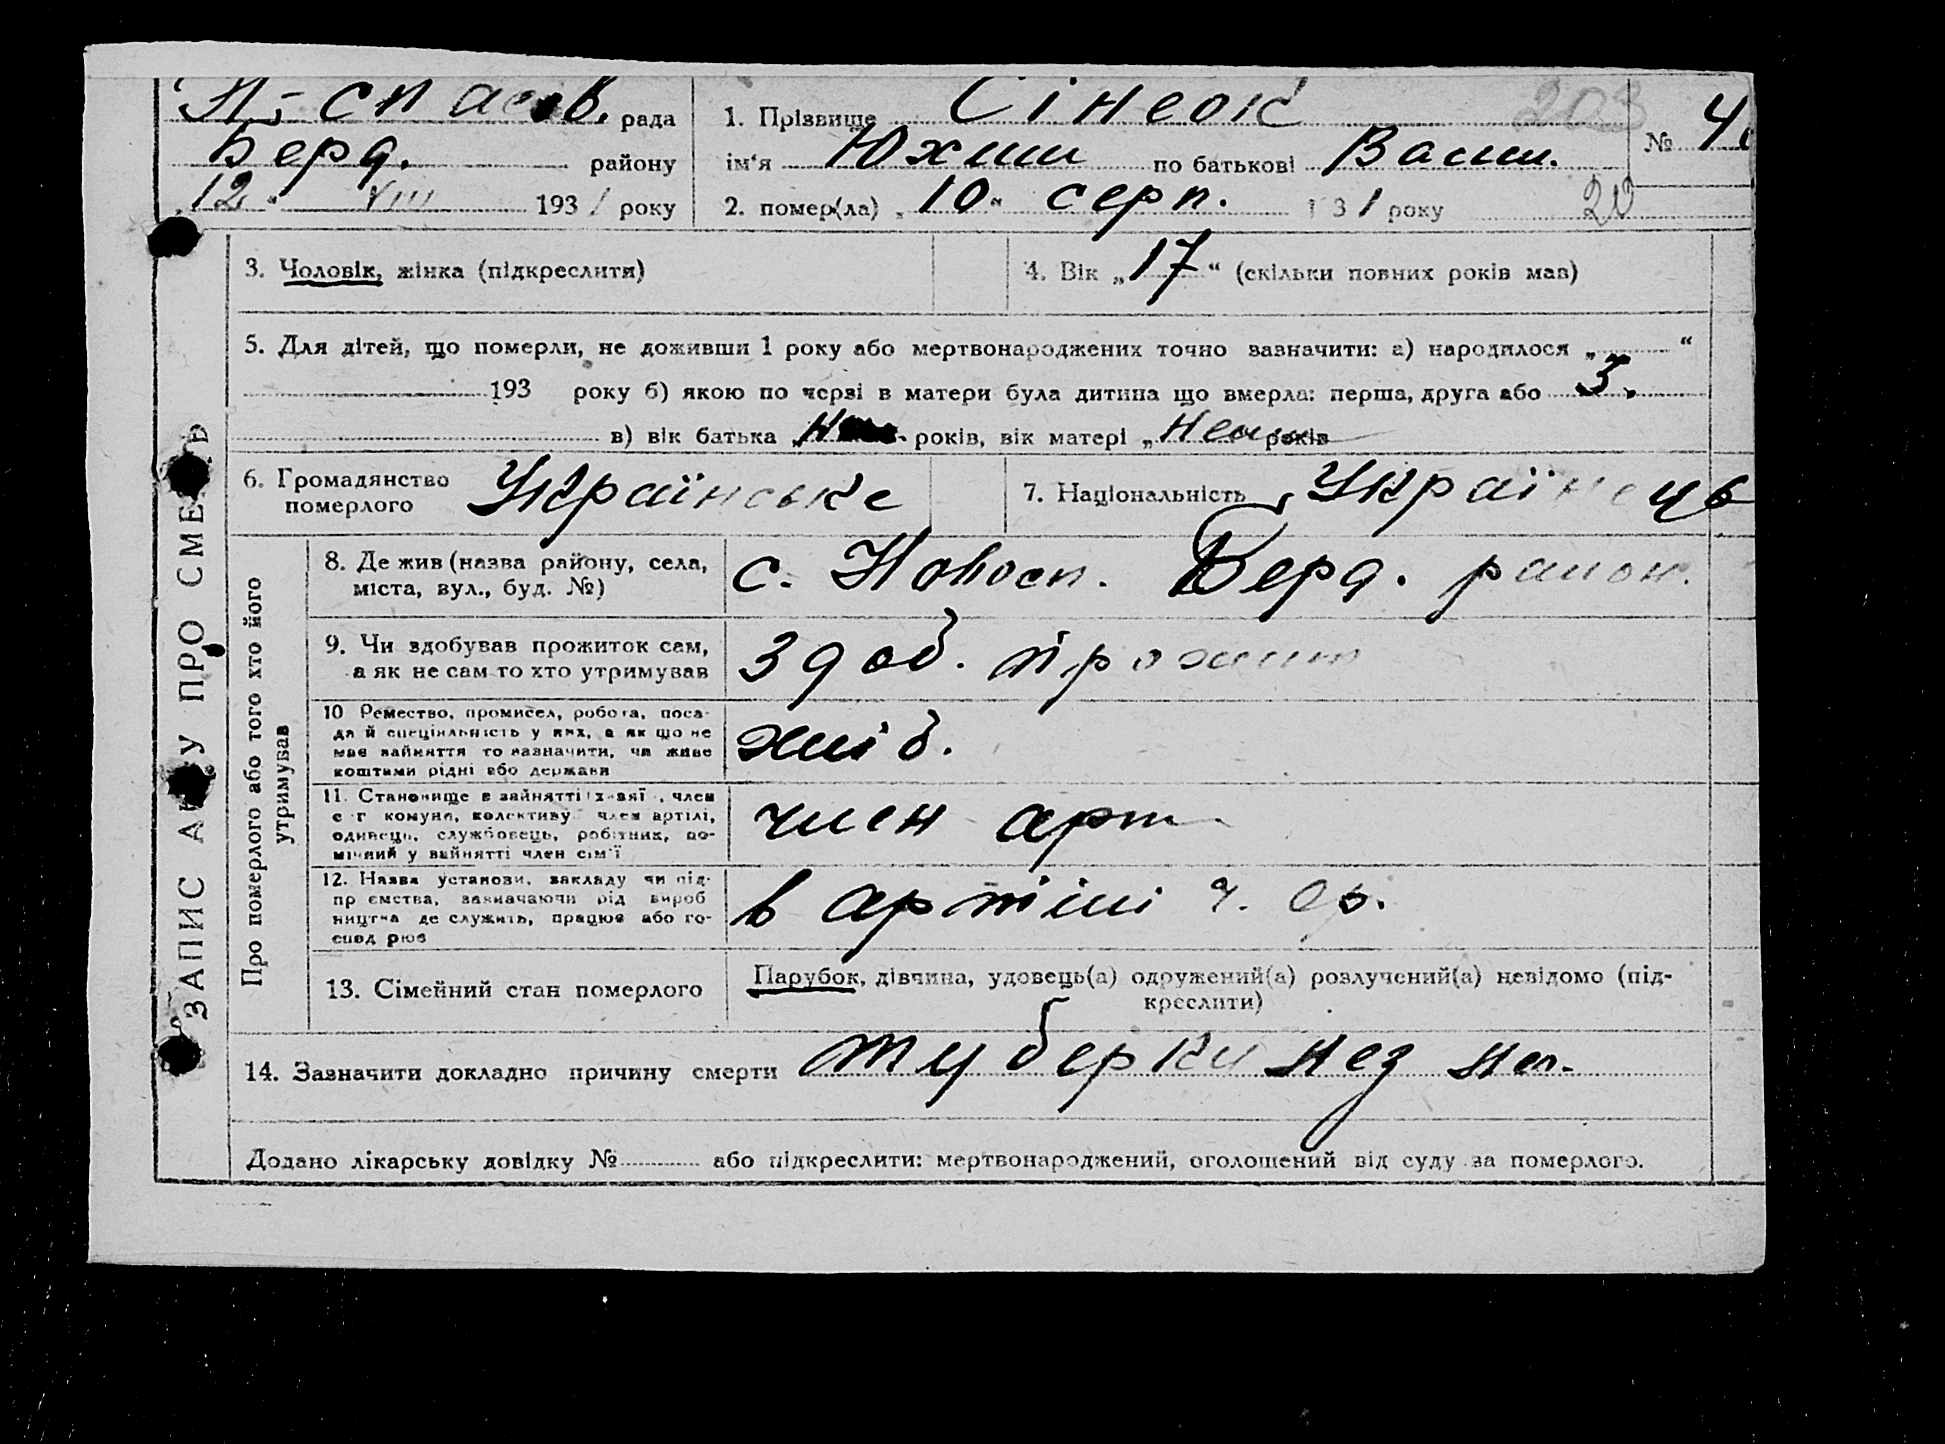 Н-спасов. рада
Берд. району
„12“ VIII 1931 року
1. Прізвище Сінеок
203
№ 4
ім'я Юхим по батькові Васил.
2. помер(ла) „10“ серп. 1931 року
20
3. Чоловік, жінка (підкреслити)
4. Вік „17“ (скільки повних років мав)
5. Для дітей, що померли, не доживши 1 року або мертвонароджених точно зазначити: а) народилося „ “
193 року б) якою по черзі в матери була дитина що вмерла: перша, друга або 3.
в) вік батька „ років, вік матері „ років
6. Громадянство
померлого Українське
7. Національність Українець
ЗАПИС АКТУ ПРО СМЕРТЬ
Про померлого або того хто його
утримував
8. Де жив (назва району, села,
міста, вул., буд. №)
с. Новосп. Берд. район.
9. Чи здобував прожиток сам,
а як не сам то хто утримував
здоб. прожит
10 Ремество, промисел, робота, поса-
да й спеціяльність у них, а як що не
має зайняття то зазначити, чи живе
коштами рідні або держави
хліб.
11. Становище в зайнятті хазяї , член
с г комуни, колективу член артілі,
одинець, службовець, робітник, по-
мічний у зайнятті член сім'ї
член арт
12. Назва установи, закладу чи під-
пр ємства, зазначаючи рід вироб
ництва де служить, працює або го-
спод рює
в артілі ч. ар.
13. Сімейний стан померлого
Парубок, дівчина, удовець(а) одружений(а) розлучений(а) невідомо (під-
креслити)
14. Зазначити докладно причину смерти туберкульоз лег.
Додано лікарську довідку № або підкреслити: мертвонароджений, оголошений від суду за померлого.